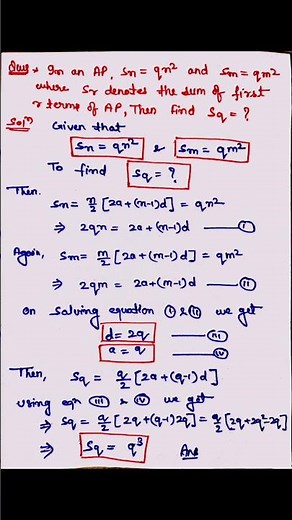 Ques → In an AP, Sn = qn² and Sm = qm²
where Sr denotes the sum of first
r terms of AP, Then find Sq = ?
Solⁿ Given that
Sn = qn² & Sm = qm²
To find Sq = ?
Then,
Sn = n/2 [2a + (n-1)d] = qn²
⇒ 2qn = 2a + (n-1)d — I
Again, Sm = m/2 [2a + (m-1)d] = qm²
⇒ 2qm = 2a + (m-1)d — II
on solving equation I & II we get
d = 2q — III
a = q — IV
Then, Sq = q/2 [2a + (q-1)d]
using eqⁿ III & IV we get
⇒ Sq = q/2 [2q + (q-1)2q] = q/2 [2q + 2q² - 2q]
⇒ Sq = q³ Ans